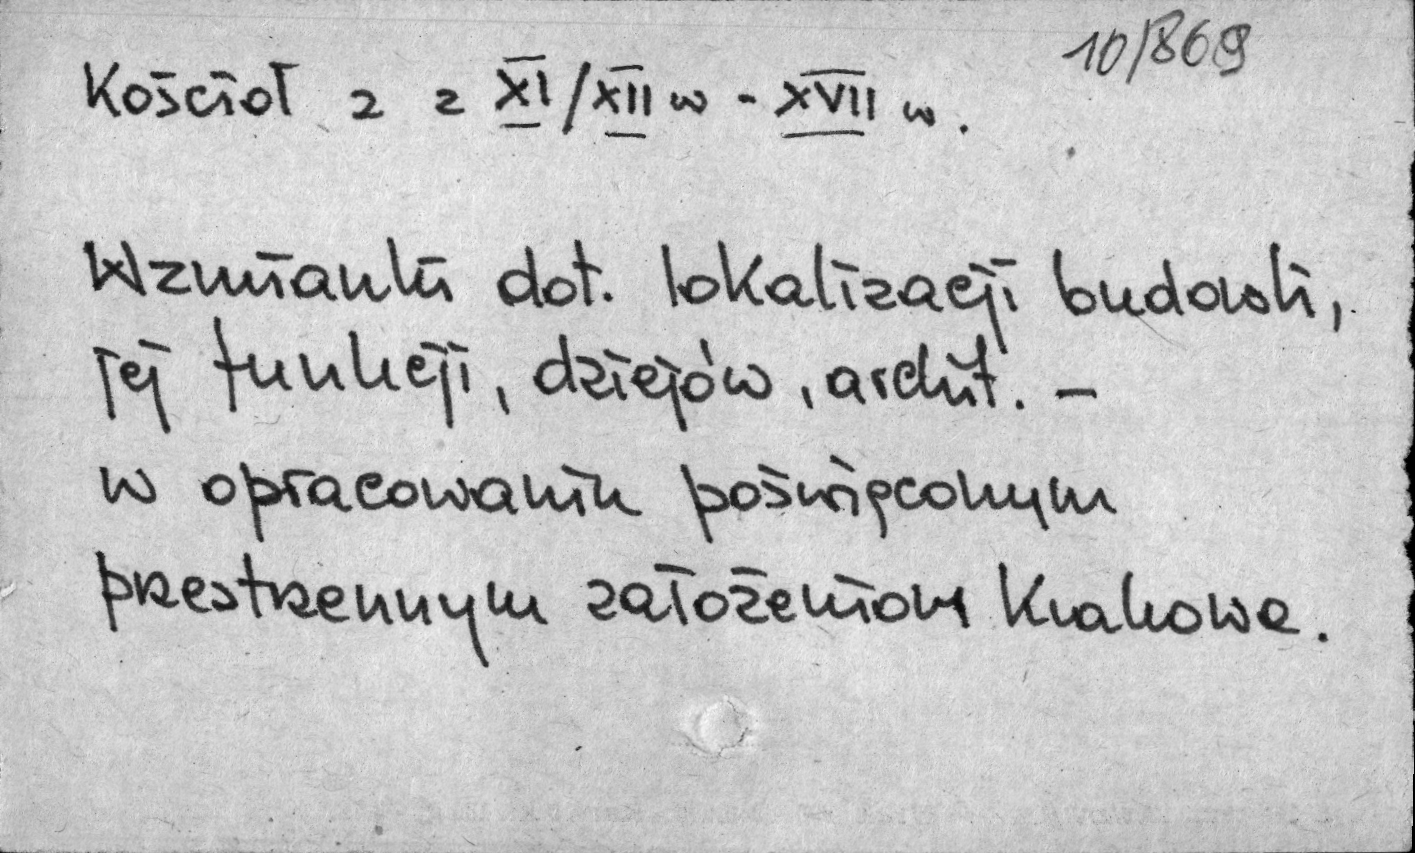 10/869
Kościoł 2 z XI/XII w - XVII w.
Wzmianki dot. lokalizacji budowli,
jej funkcji, dziejów, archit. –
w opracowaniu poświęconym
przestrzennym założeniom Krakowa.